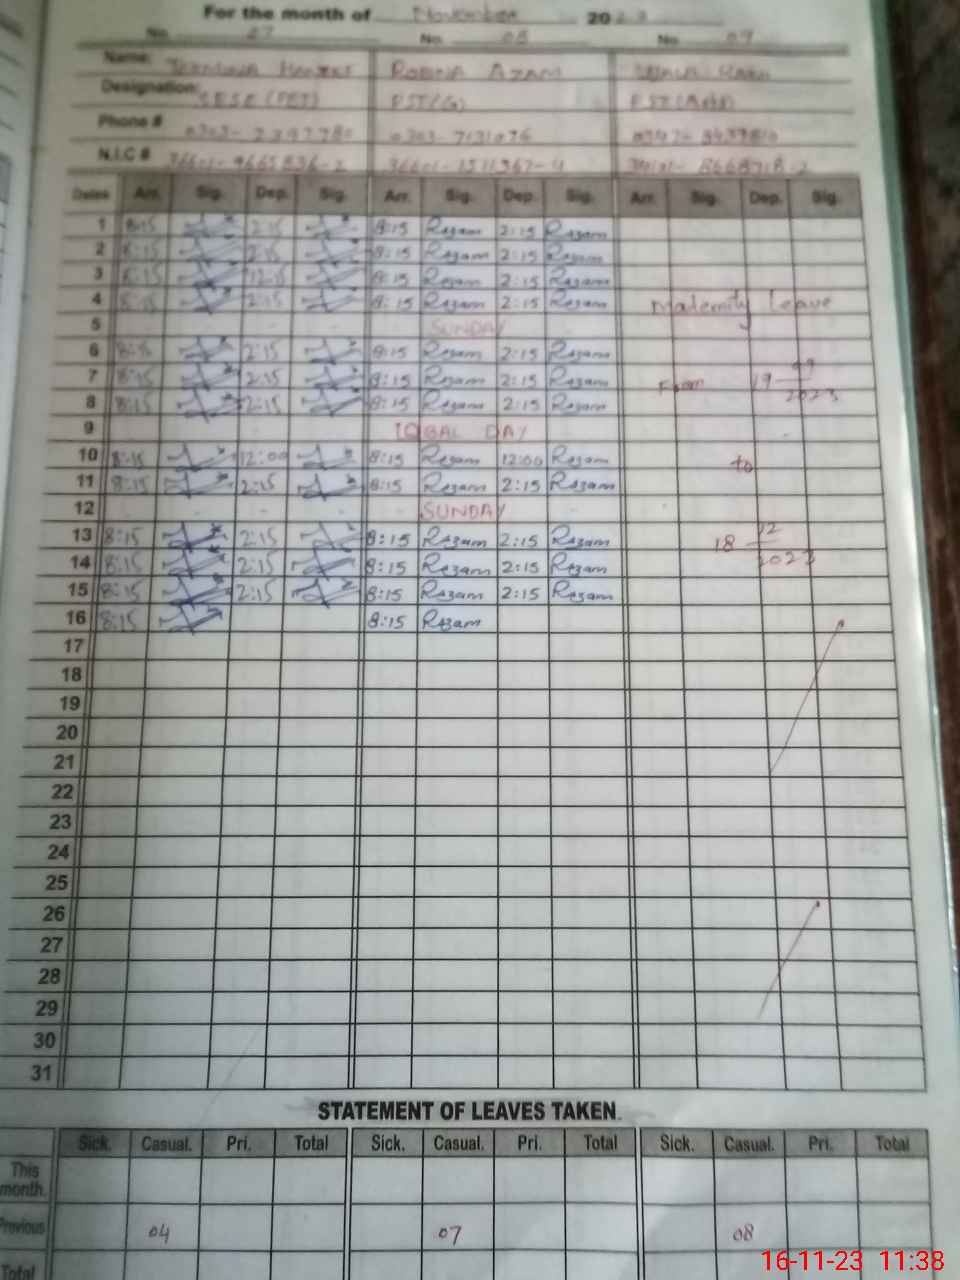 For the month of November 2023
No. 07 No. 08 No. 09
Name: Hameet Robina Azam
Designation: SESE (PET) PST(G) PST(Arts)
Phone # 0303- 0303-7131076 0347-
N.I.C # 36601- 36601-1511367-4
Dates Arr. Sig. Dep. Sig. Arr. Sig. Dep. Sig. Arr. Sig. Dep. Sig.
1 8:15 2:15 8:15 Rezam 2:15 Rezam
2 8:15 2:15 8:15 Rezam 2:15 Rezam
3 8:15 12:15 8:15 Rezam 2:15 Rezam
4 8:15 2:15 8:15 Rezam 2:15 Rezam Maternity Leave
5 SUNDAY
6 8:15 2:15 8:15 Rezam 2:15 Rezam
7 8:15 2:15 8:15 Rezam 2:15 Rezam From 19 09 2023
8 8:15 2:15 8:15 Rezam 2:15 Rezam
9 IQBAL DAY
10 8:15 12:00 8:15 Rezam 12:00 Rezam to
11 8:15 2:15 8:15 Rezam 2:15 Rezam
12 SUNDAY
13 8:15 2:15 8:15 Rezam 2:15 Rezam 18 12 2023
14 8:15 2:15 8:15 Rezam 2:15 Rezam
15 8:15 2:15 8:15 Rezam 2:15 Rezam
16 8:15 8:15 Rezam
17
18
19
20
21
22
23
24
25
26
27
28
29
30
31
STATEMENT OF LEAVES TAKEN.
Sick. Casual. Pri. Total Sick. Casual. Pri. Total Sick. Casual. Pri. Total
This month.
Previous 04 07 08
Total
16-11-23 11:38